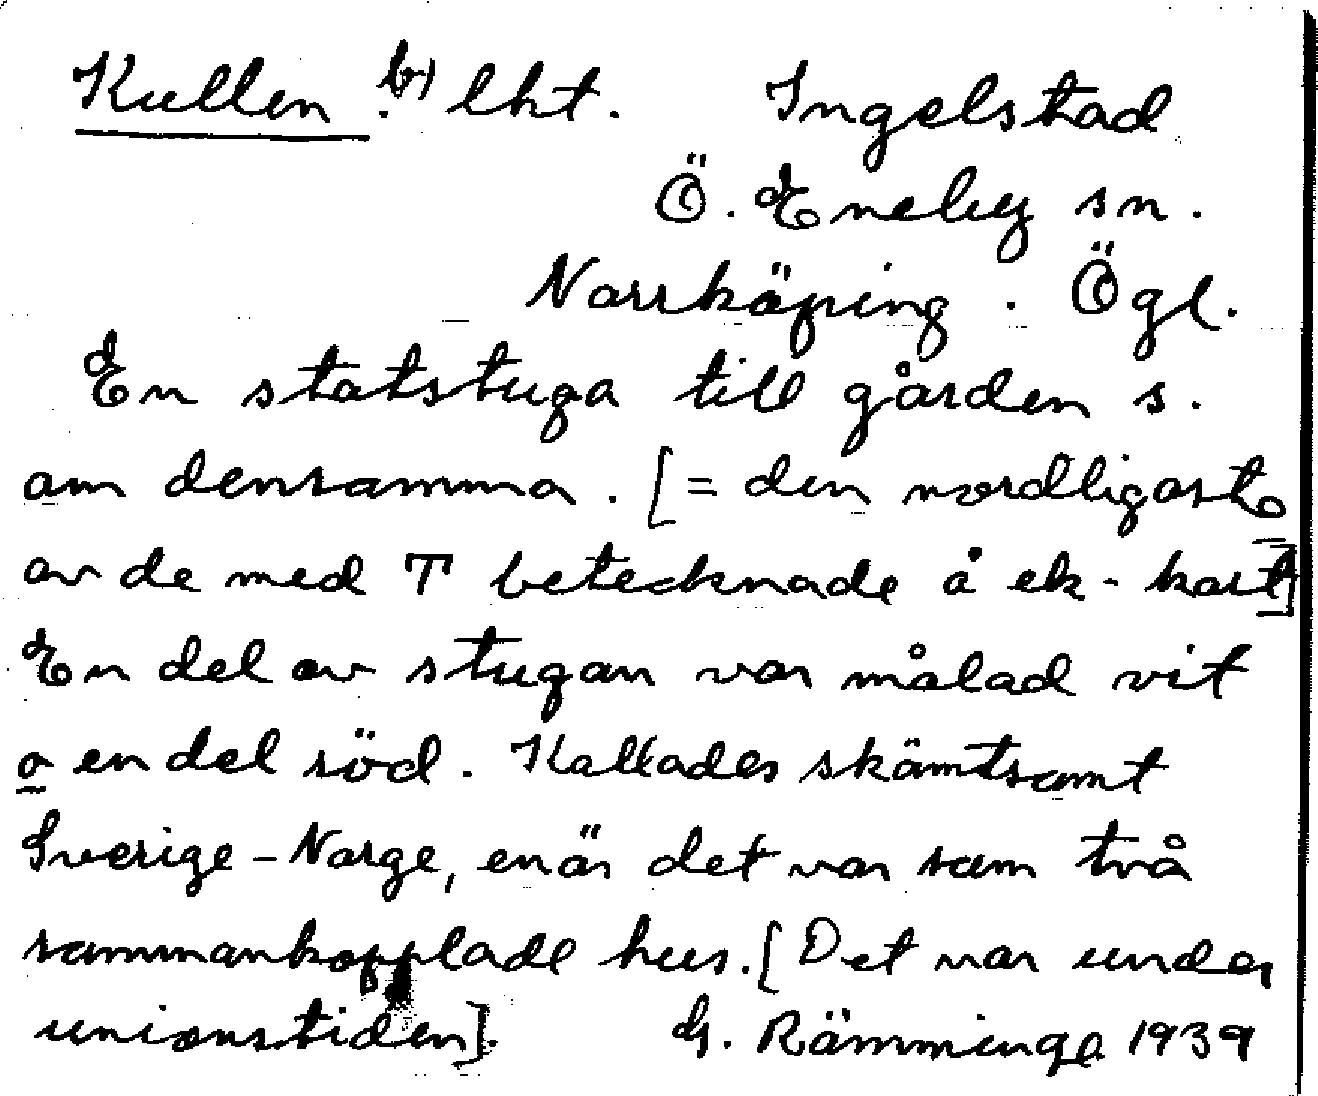 Kullen. b) lht. Ingelstad
Ö. Eneby sn.
Norrköping. Ögl.
En statstuga till gården s.
om densamma. [= den nordligaste
av de med T betecknade å ek-kart]
En del av stugan var målad vit
o en del röd. Kallades skämtsamt
Sverige-Norge, enär det var som två
sammankopplade hus. [Det var under
unionstiden]. G. Rämminge 1939